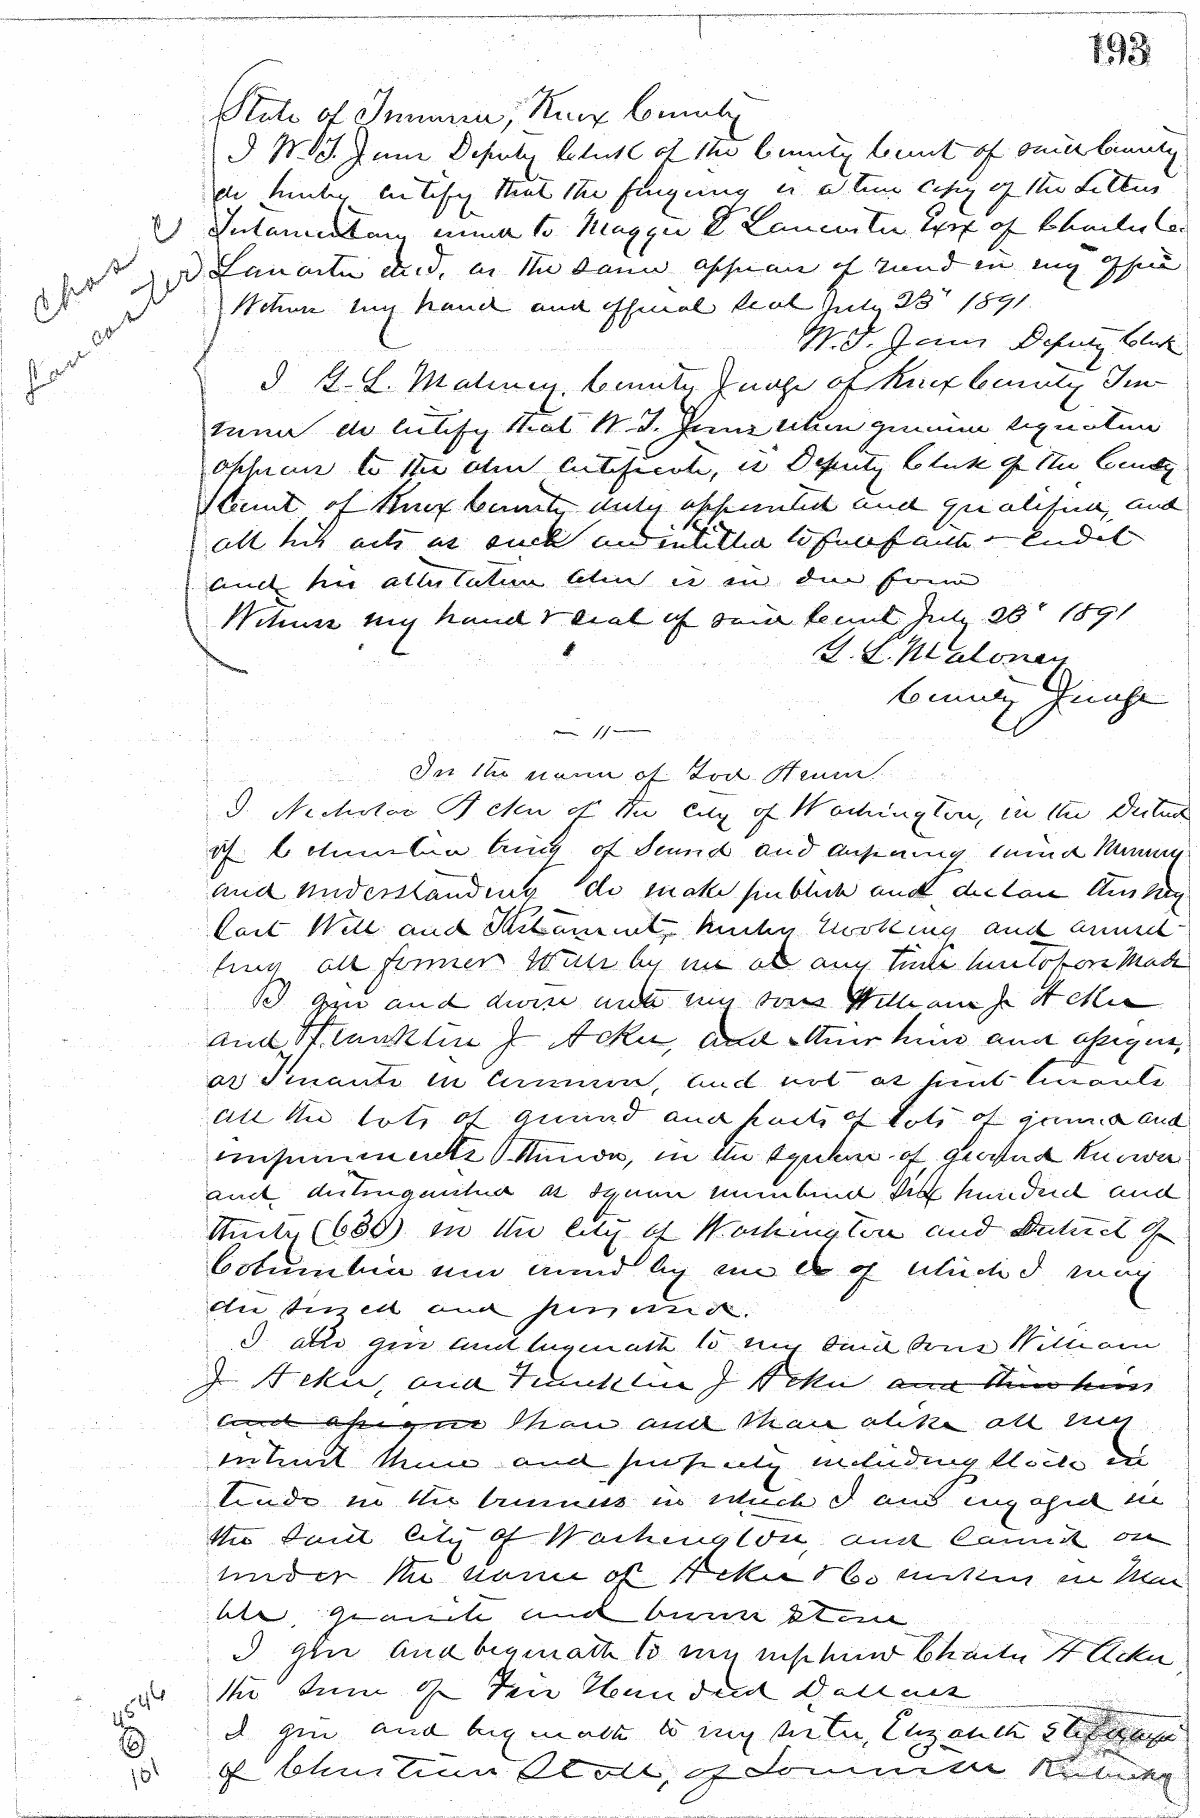 193
State of Tennessee, Knox County
I W. T. Jones Deputy Clerk of the County Court of said County
do hereby certify that the forgoing is a true copy of the Letters
Testamentary issued to Maggie E Lancaster Exrx of Charles C.
Lancaster decd, as the same appears of record in my office
Witness my hand and official seal July 23" 1891
W. T. Jones Deputy Clerk
Chas C
Lancaster
I G. L. Maloney, County Judge of Knox County Ten-
nessee do certify that W. T. Jones whose genuine signature
appears to the above certificate, is Deputy Clerk of the County
Court of Knox County duly appointed and qualified, and
all his acts as such are intitled to full faith & credit
and his attestation above is in due form
Witness my hand & seal of said Court July 23" 1891
G. L. Maloney
County Judge
— " —
In the name of God Amen
I Nicholas Acker of the City of Washington, in the District
of Columbia being of sound and disposing mind memory
and understanding do make publish and declare this my
last Will and Testament, hereby revoking and annul-
ling all former Wills by me at any time heretofore made
I give and devise unto my sons William J Acker
and Francklin J Acker, and their heirs and assigns,
as Tenants in common, and not as joint tenants
all the lots of ground and parts of lots of ground and
improvements thereon, in the square of ground Known
and distinguished as square numbered Six hundred and
thirty (630) in the City of Washington and District of
Columbia now owned by me or of which I may
die siezed and possessed.
I also give and bequeath to my said sons William
J Acker, and Francklin J Acker and their heirs
and assigns share and share alike all my
interest therein and property including Stock in
trade in the business in which I am engaged in
the said City of Washington, and carried on
under the name of Acker & Co workers in Mar
ble, granite and brown stone
I give and bequeath to my nephew Charles A Acker,
the sum of Five Hundred Dollars
I give and bequeath to my sister, Elizabeth
of Christian Stoll, of Louisville Kentucky
4546
6
101